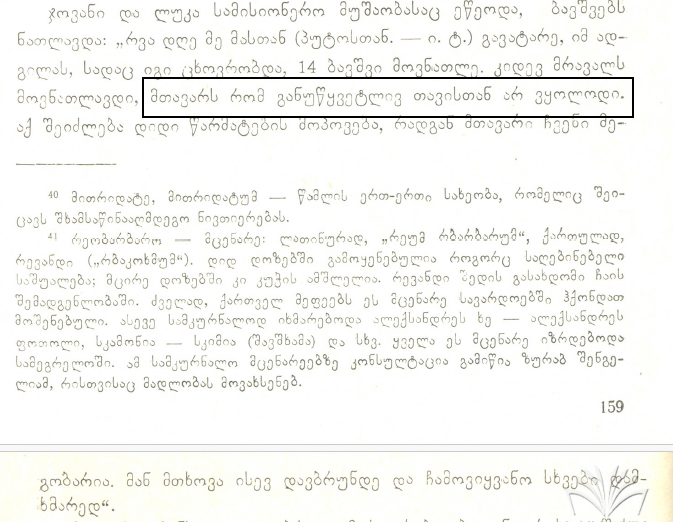 ჯოვანი და ლუკა სამისიონერო მუშაობასაც ეწეოდა, ბავშვებს
ნათლავდა: „რვა დღე მე მასთან (პუტოსთან. — ი. ტ.) გავატარე, იმ ად-
გილას, სადაც იგი ცხოვრობდა, 14 ბავშვი მოვნათლე. კიდევ მრავალს
მოვნათლავდი, მთავარს რომ განუწყვეტლივ თავისთან არ ვყოლოდი.
აქ შეიძლება დიდი წარმატების მოპოვება, რადგან მთავარი ჩვენი მე-
40 მითრიდატე, მითრიდატუმ — წამლის ერთ-ერთი სახეობა, რომელიც შეი-
ცავს შხამსაწინააღმდეგო ნივთიერებას.
41 რეობარბარო — მცენარე: ლათინურად, „რეუმ რბარბარუმ“, ქართულად,
რევანდი („რბაკოხმუმ“). დიდ დოზებში გამოყენებულია როგორც საღებინებელი
საშუალება; მცირე დოზებში კი კუჭის ამშლელია. რევანდი შედის გასახდომი ჩაის
შემადგენლობაში. ძველად, ქართველ მეფეებს ეს მცენარე სავარდოებში ჰქონდათ
მოშენებული. ასევე სამკურნალოდ იხმარებოდა ალექსანდრეს ხე — ალექსანდრეს
ფოთოლი, სკამონია — სკიმია (შავშხამა) და სხვ. ყველა ეს მცენარე იზრდებოდა
სამეგრელოში. ამ სამკურნალო მცენარეებზე კონსულტაცია გამიწია ზურაბ შენგე-
ლიამ, რისთვისაც მადლობას მოვახსენებ.
159
გობარია. მან მთხოვა ისევ დავბრუნდე და ჩამოვიყვანო სხვები დამ-
ხმარედ“.